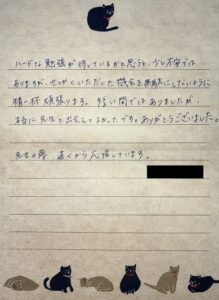 ハードな勉強が待っているかと思うと、少し不安では
ありますが、せっかくいただいた機会を無駄にしないように
精一杯頑張ります。短い間ではありましたが、
本当に先生と出会えてよかったです。ありがとうございました。
先生の夢、遠くから応援しています。